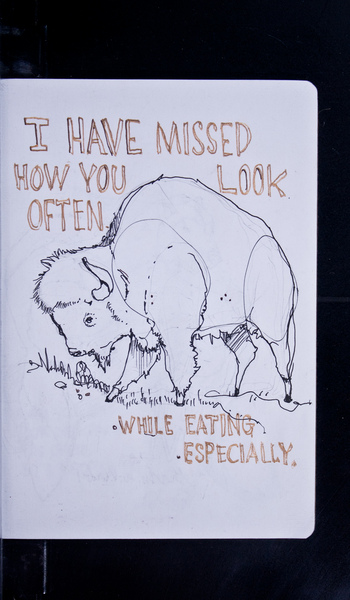 I HAVE MISSED
HOW YOU LOOK
OFTEN
.WHILE EATING
.ESPECIALLY.